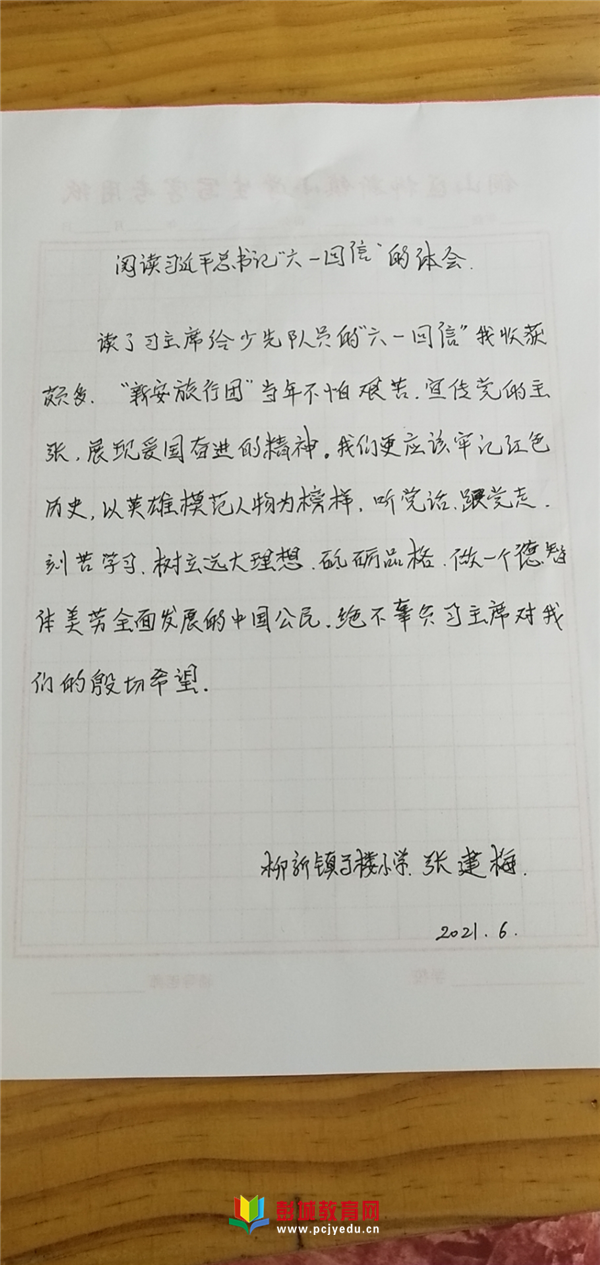 阅读习近平总书记“六一回信”的体会.
读了习主席给少先队员的“六一回信”我收获
颇多.“新安旅行团”当年不怕艰苦.宣传党的主
张,展现爱国奋进的精神。我们更应该牢记红色
历史,以英雄模范人物为榜样,听党话.跟党走.
刻苦学习.树立远大理想.砥砺品格.做一个德智
体美劳全面发展的中国公民.绝不辜负习主席对我
们的殷切希望.
柳新镇 楼小学.张建梅.
2021.6.
彭城教育网
www.pcjyedu.cn